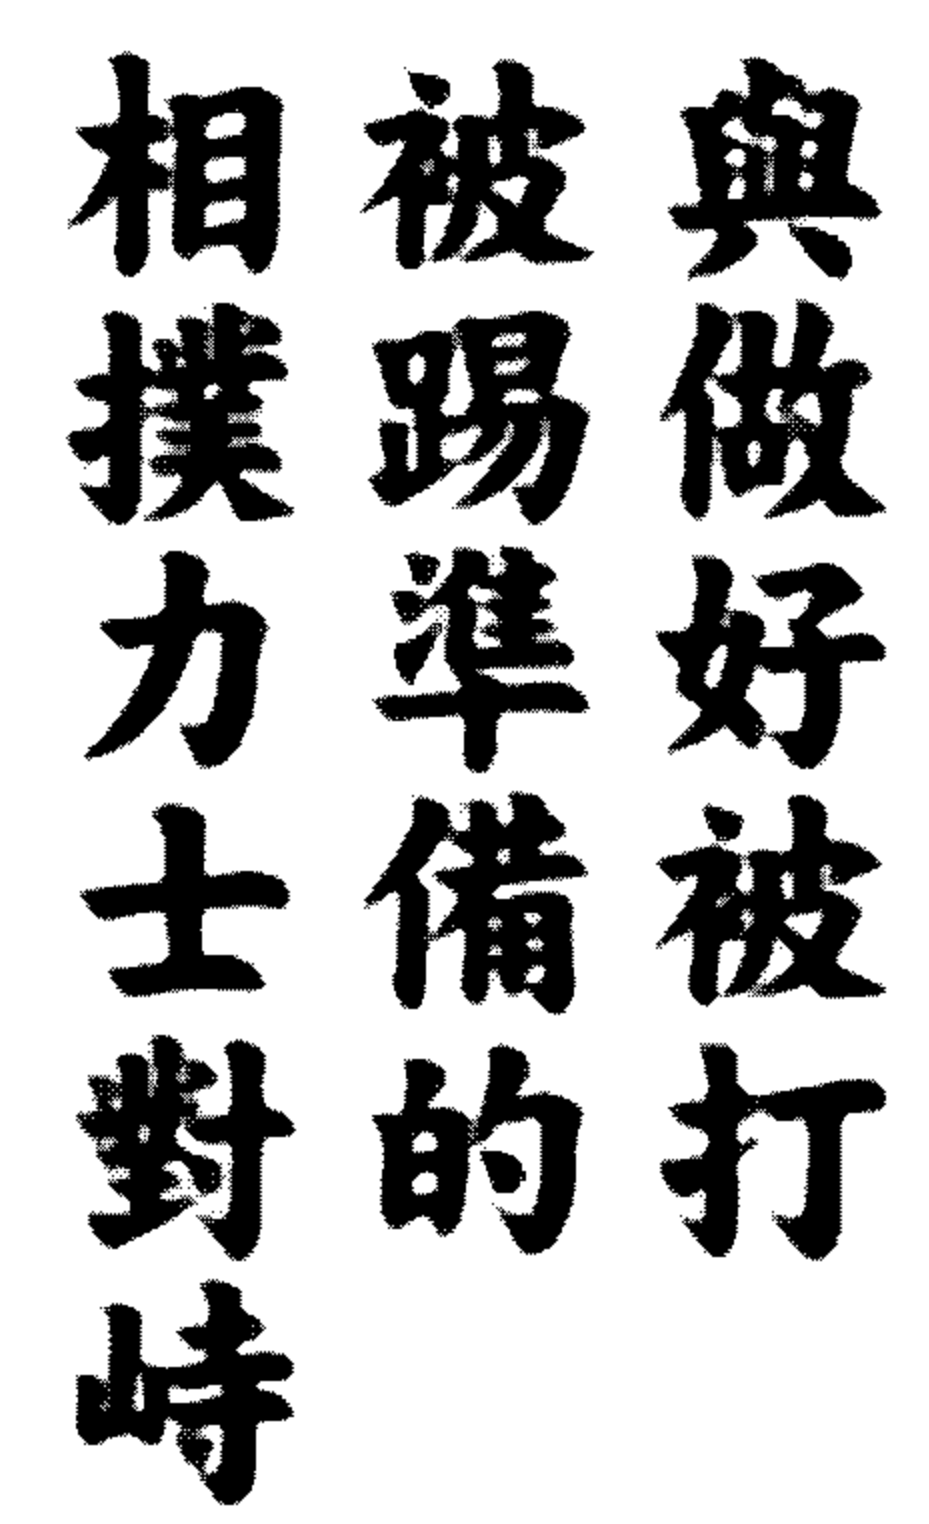 與做好被打
被踢準備的
相撲力士對峙